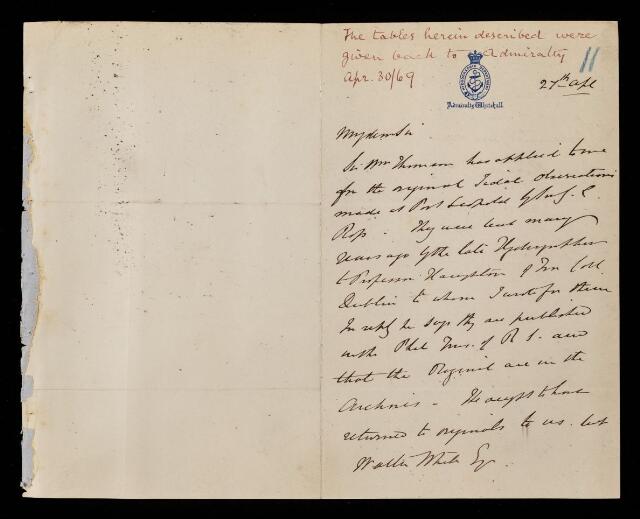 The tables herein described were
given back to Admiralty
Apr. 30/69
11
Admiralty Whitehall
27th Apl
My dear Sir
Sir Wm Thomson has applied to me
for the original Tidal Observations
made at Port Leopold by Sir J. C.
Ross. They were lent many
years ago by the late Hydrographer
to Professor Haughton of Trin Coll
Dublin to whom I wrote for them
In reply he says they are published
in the Phil Trans. of R S. and
that the Original are in the
Archives. He ought to have
returned the originals to us. but
Walter White Esq.